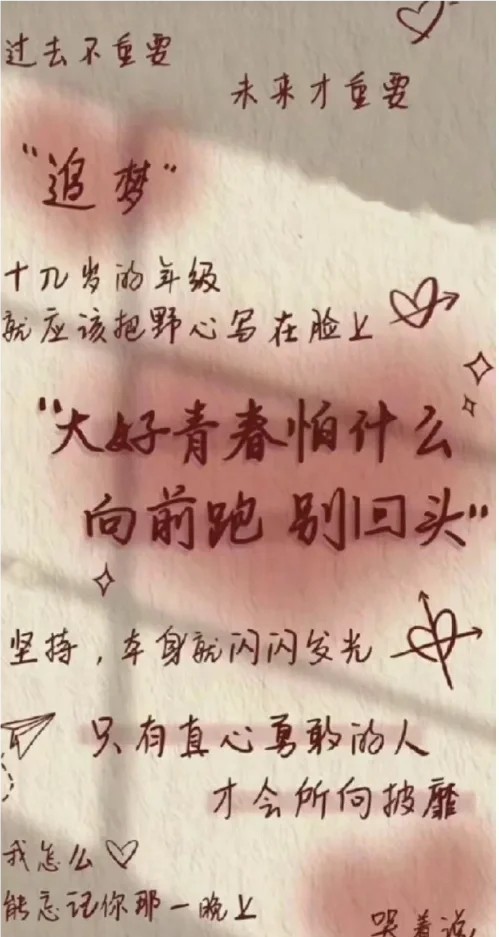 过去不重要
未来才重要
"追梦"
十几岁的年级
就应该把野心写在脸上
"大好青春怕什么
向前跑 别回头"
坚持，本身就闪闪发光
只有真心勇敢的人
才会所向披靡
我怎么♡
能忘记你那一晚上
哭着说